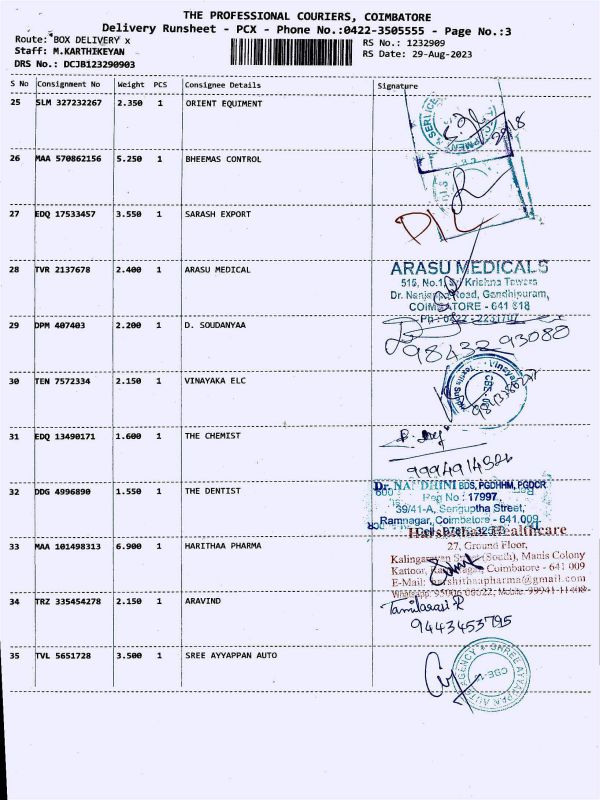 THE PROFESSIONAL COURIERS, COIMBATORE
Delivery Runsheet - PCX - Phone No.:0422-3505555 - Page No.:3
Route: BOX DELIVERY x
RS No.: 1232909
Staff: M.KARTHIKEYAN
RS Date: 29-Aug-2023
DRS No.: DCJB123290903
S No Consignment No Weight PCS Consignee Details Signature
25 SLM 327232267 2.350 1 ORIENT EQUIMENT
26 MAA 570862156 5.250 1 BHEEMAS CONTROL
27 EDQ 17533457 3.550 1 SARASH EXPORT
28 TVR 2137678 2.400 1 ARASU MEDICAL
ARASU MEDICALS
515, No.1, Sri Krishna Towers
Dr. Nanjappa Road, Gandhipuram,
COIMBATORE - 641 018
29 DPM 407403 2.200 1 D. SOUDANYAA
98432 93080
30 TEN 7572334 2.150 1 VINAYAKA ELC
Vinayaka
31 EDQ 13490171 1.600 1 THE CHEMIST
32 DDG 4996890 1.550 1 THE DENTIST
Dr. NANDHINI BDS, PGDHHM, PGDCR
Reg No : 17997
39/41-A, Senguptha Street,
Ramnagar, Coimbatore - 641 009
33 MAA 101498313 6.900 1 HARITHAA PHARMA
Healthcare
27, Ground Floor,
Kalingarayan Street (South), Manis Colony
Kattoor, Ramnagar, Coimbatore - 641 009
E-Mail:
34 TRZ 335454278 2.150 1 ARAVIND
Tamilarasi R
9443453795
35 TVL 5651728 3.500 1 SREE AYYAPPAN AUTO
SHREE AYYAPPAN AUTO AGENCY